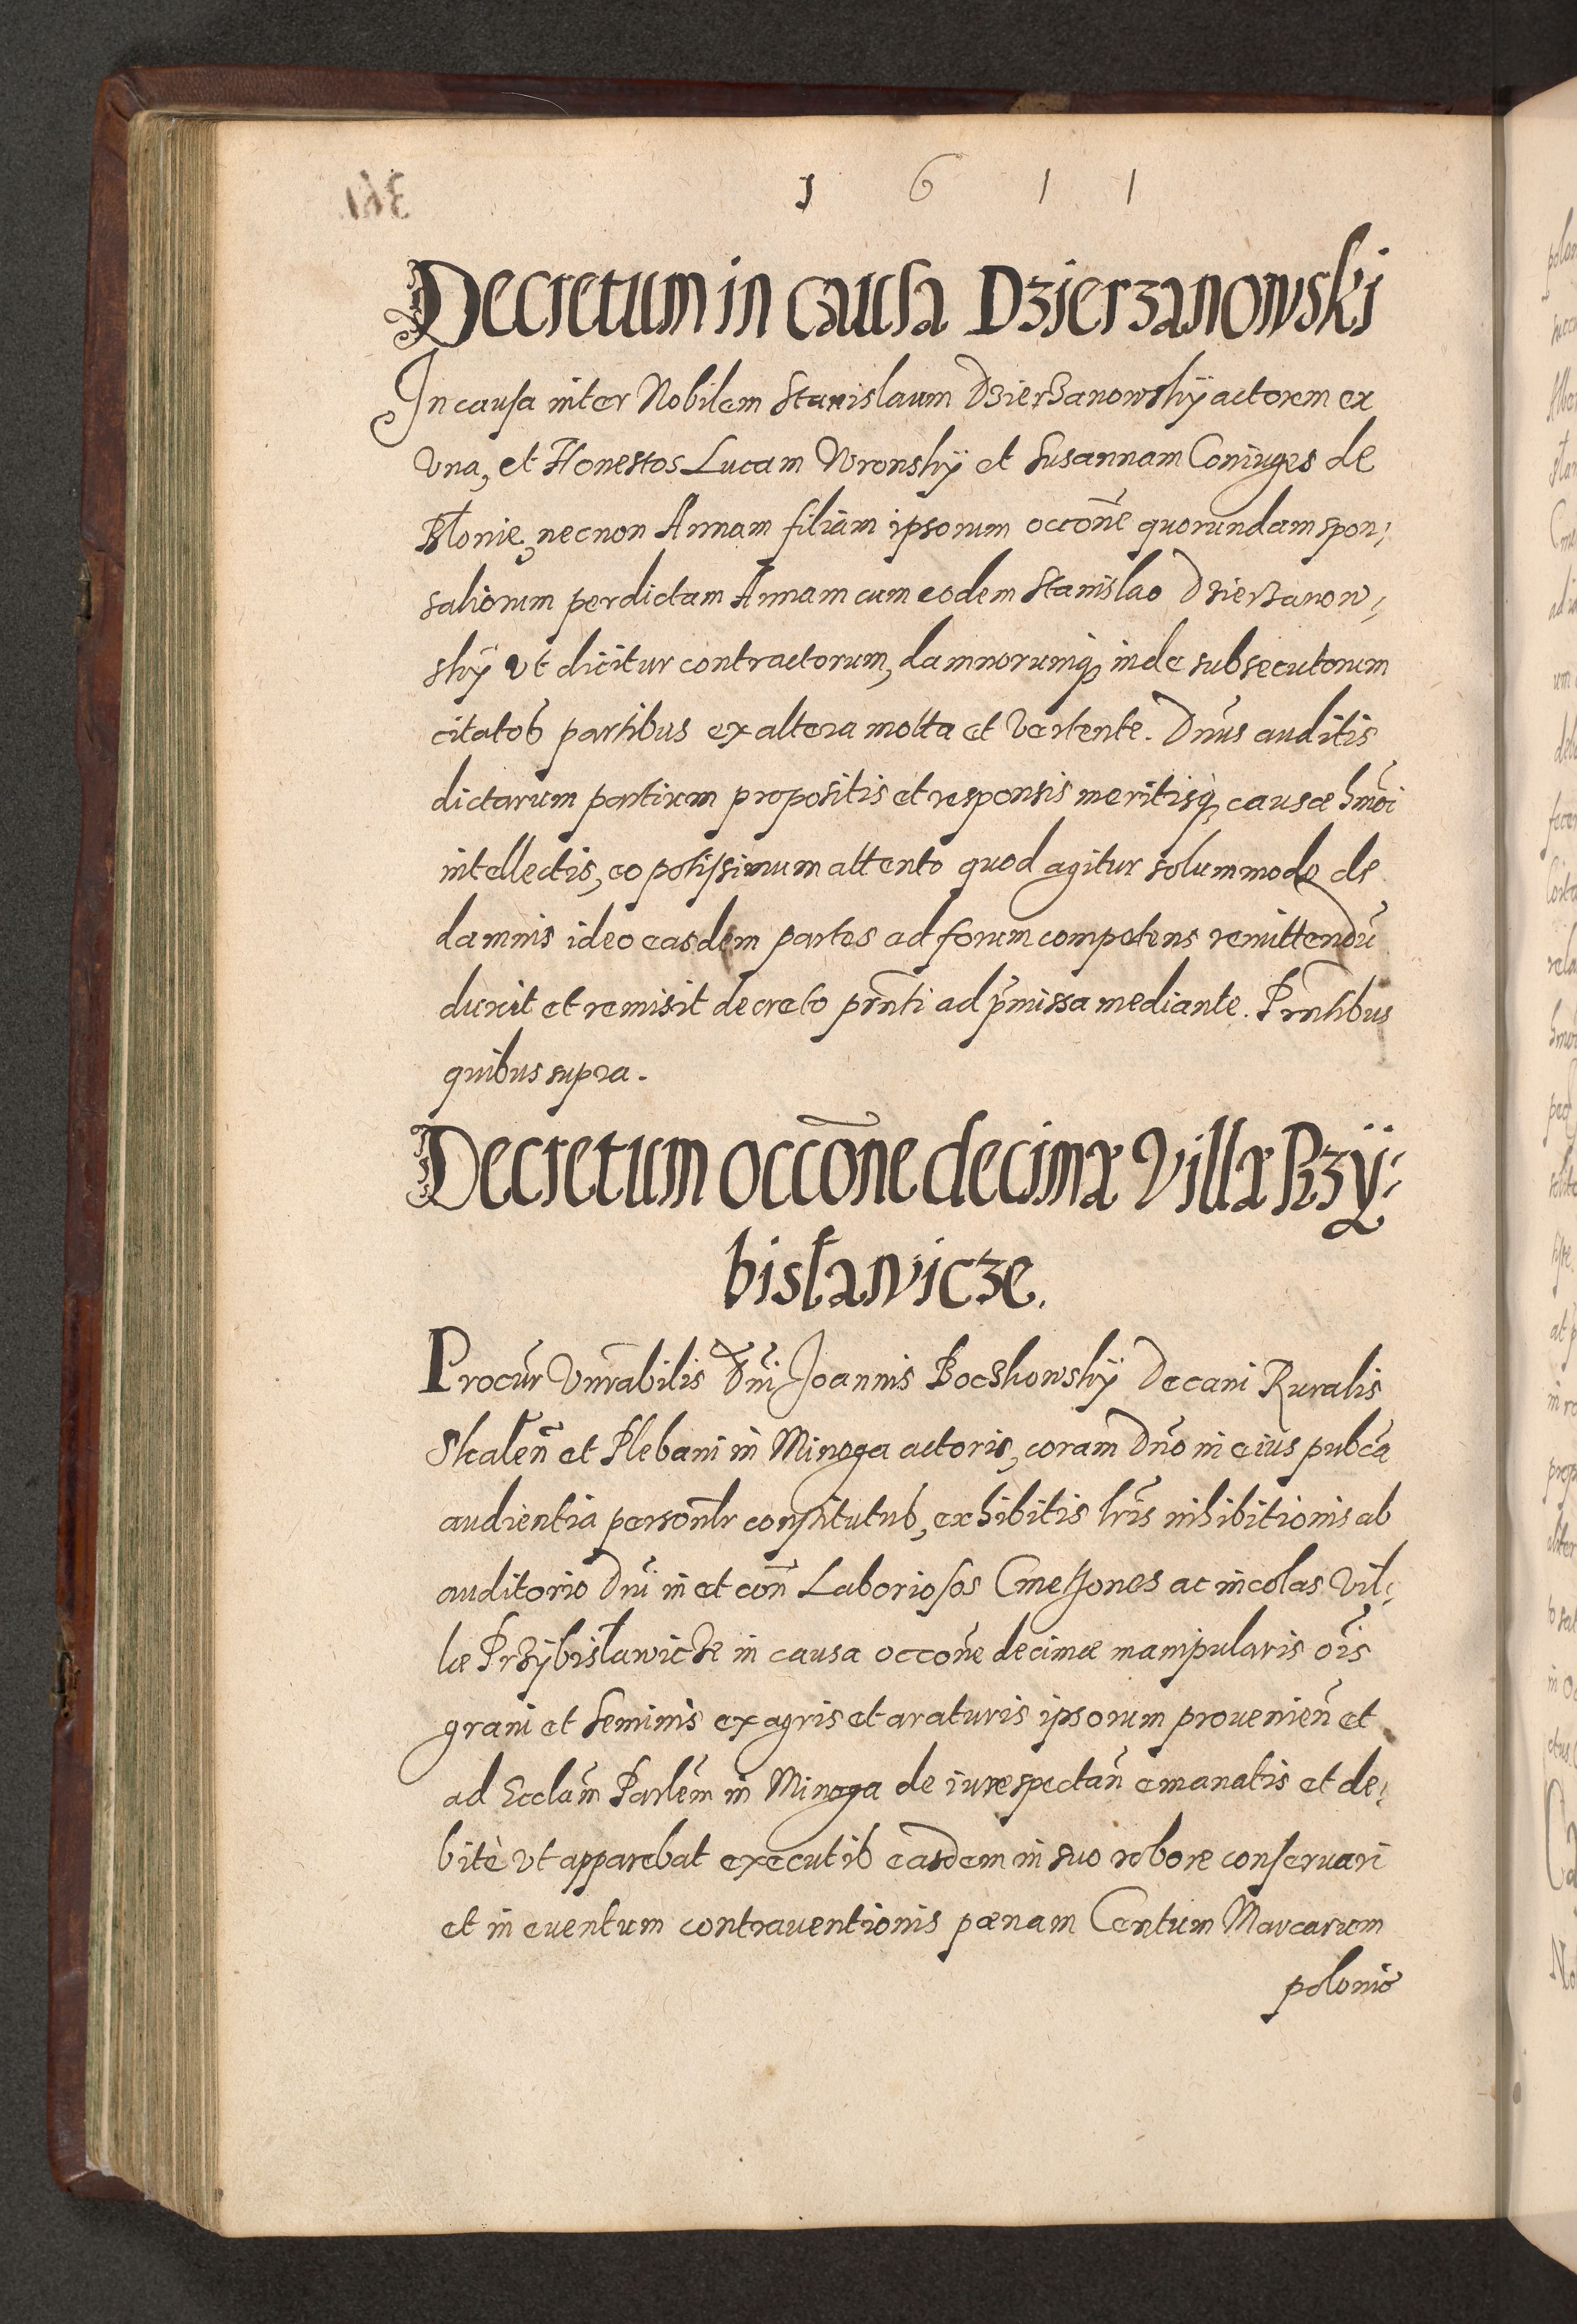 1 6 1 1
Decretum in causa Dzierzanowski
In causa inter Nobilem Stanislaum Dzierzanowskÿ actorem ex
Una, et Honestos Lucam Wronskÿ et Susannam Coniuges de
Błonie, necnon Annam filiam ipsorum occōne quorundam spon,
saliorum per dictam Annam cum eodem Stanislao Dzierzanow,
skÿ vt dicitur contractorum, damnorumq3 inde subsecutorum
citatos partibus ex altera motta et Vertente. Dn̄us auditis
dictarum partium propositis et responsis meritisq3 causæ hm̄oi
intellectis, eo potissimum attento quod agitur solummodo de
damnis ideo easdem partes ad forum competens remittendū
duxit et remisit decreto pn̄ti ad p̄missa mediante. Pn̄tibus
quibus supra.
Decretum occōne decimæ Villæ Przÿ,
bisławicze.
Procur̄ Vn̄rabilis Dn̄i Joannis Boczkowskÿ Decani Ruralis
Skaleñ et Plebani in Minoga actoris, coram Dn̄o in eius pub̄ca
audientia person̄lr constitutus, exhibitis lr̄is inhibitionis ab
auditorio Dn̄i in et con̄ Laboriosos Cmethones ac incolas Vil,
læ Przÿbisławicze in causa occōne decimæ manipularis ōis
grani et seminis ex agris et araturis ipsorum provenien̄ et
ad Eccl̄am Parl̄em in Minoga de iure spectan̄ emanatis et de,
bitè vt apparebat executis easdem in suo robore conservari
et in eventum contraventionis pœnam Centum Marcarum
polonic̄